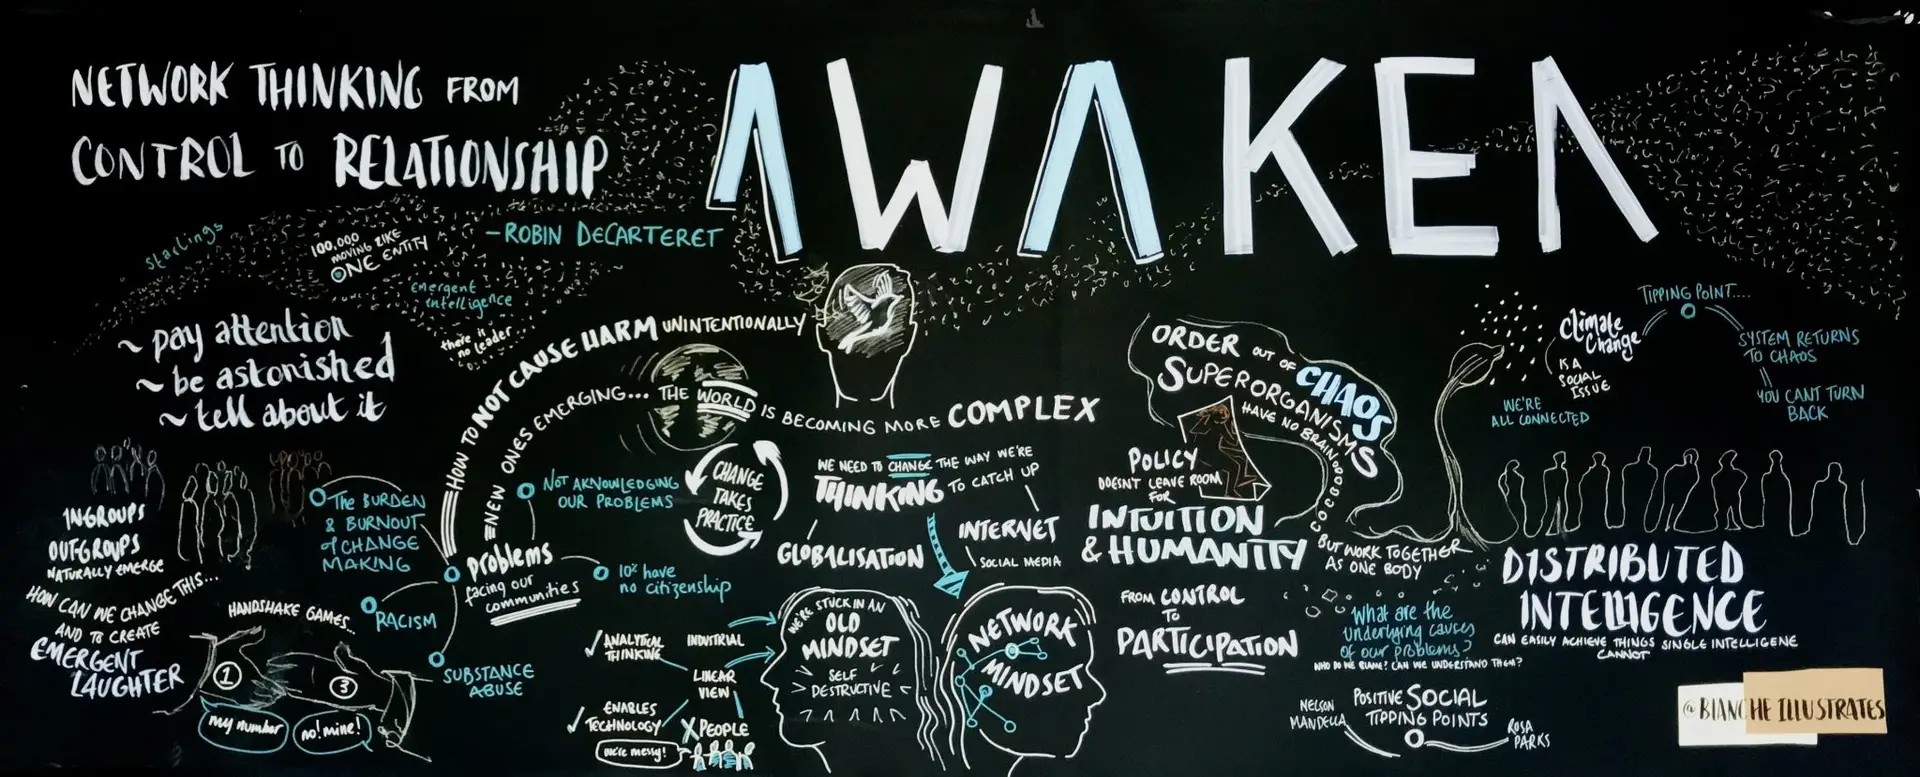 NETWORK THINKING FROM
CONTROL TO RELATIONSHIP
- ROBIN DECARTERET
AWAKEN
Starlings
100,000
MOVING LIKE
ONE ENTITY
Emergent
intelligence
there is
no leader...
~ pay attention
~ be astonished
~ tell about it
HOW TO NOT CAUSE HARM UNINTENTIONALLY
NEW ONES EMERGING... THE WORLD IS BECOMING MORE COMPLEX
INGROUPS
OUTGROUPS
NATURALLY EMERGE
HOW CAN WE CHANGE THIS...
AND TO CREATE
EMERGENT
LAUGHTER
HANDSHAKE GAMES...
1
3
my number
no! mine!
Problems
facing our
communities
THE BURDEN
& BURNOUT
of CHANGE
MAKING
RACISM
SUBSTANCE
ABUSE
NOT AKNOWLEDGING
OUR PROBLEMS
10% have
no citizenship
CHANGE
TAKES
PRACTICE
WE NEED TO CHANGE THE WAY WE'RE
THINKING TO CATCH UP
GLOBALISATION
INTERNET
SOCIAL MEDIA
ANALYTICAL
THINKING
INDUSTRIAL
LINEAR
VIEW
ENABLES
TECHNOLOGY
X PEOPLE
we're messy!
WE'RE STUCK IN AN
OLD
MINDSET
SELF
DESTRUCTIVE
NETWORK
MINDSET
ORDER OUT OF CHAOS
SUPERORGANISMS
HAVE NO BRAIN OR BODY
BUT WORK TOGETHER
AS ONE BODY
POLICY
DOESN'T LEAVE ROOM
FOR
INTUITION
& HUMANITY
FROM CONTROL
TO
PARTICIPATION
What are the
underlying causes
of our problems?
WHO DO WE BLAME? CAN WE UNDERSTAND THEM?
NELSON
MANDELLA
POSITIVE SOCIAL
TIPPING POINTS
ROSA
PARKS
WE'RE
ALL CONNECTED
Climate
Change
IS A
SOCIAL
ISSUE
TIPPING POINT....
SYSTEM RETURNS
TO CHAOS
YOU CANT TURN
BACK
DISTRIBUTED
INTELLIGENCE
CAN EASILY ACHIEVE THINGS SINGLE INTELLIGENE
CANNOT
@BIANCHE ILLUSTRATES